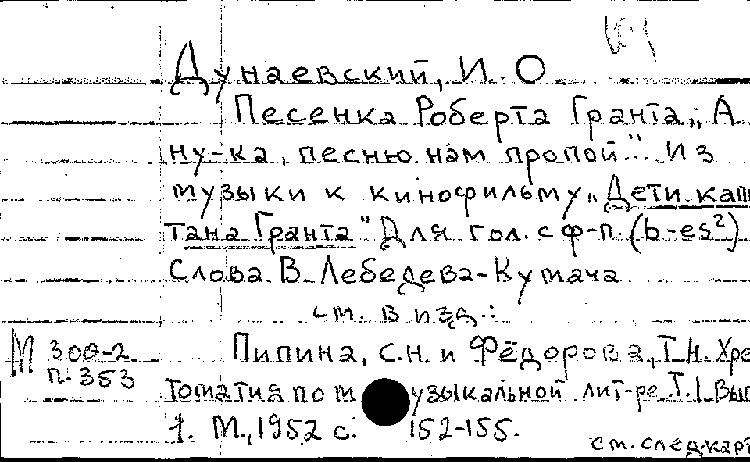 Дунаевский, И. О
Песенка Роберта Гранта „А
ну-ка, песню нам пропой". Из
музыки к кинофильму „Дети капи
тана Гранта" Для гол. с ф-п. (b-es²)
Слова В. Лебедева-Кумача
см. в изд.:
М 300-2 Пипина, С.Н. и Фёдорова, Т.Н. Хрес
п. 353
томатия по м узыкальной лит-ре Т. I. Вып
1. М., 1952 с. 152-155.
см. след. карт